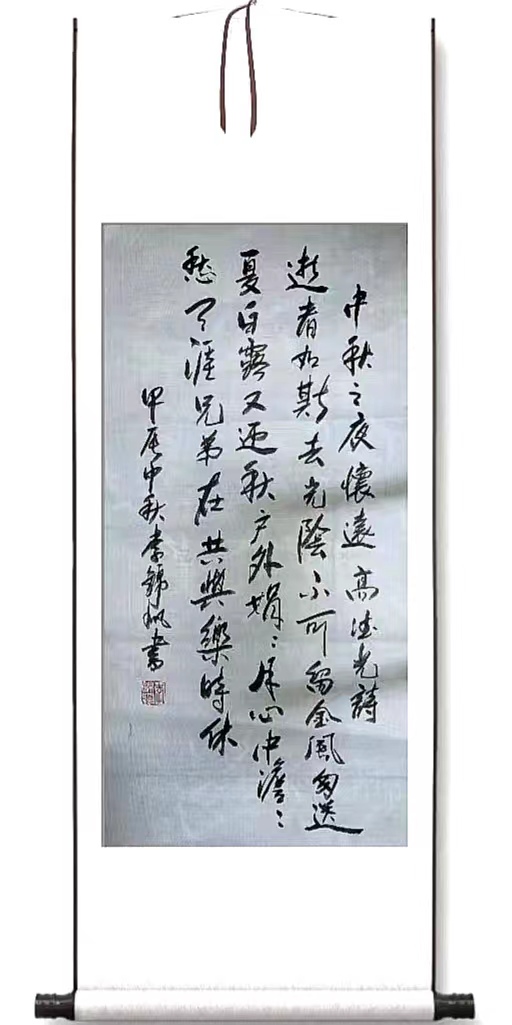 中秋之夜懷遠高德光詩
逝者如斯去光陰不可留金風匆送
夏白露又迎秋戶外娟〻月心中澹〻
愁天涯兄弟在共與樂時休
甲辰中秋李錦帆書